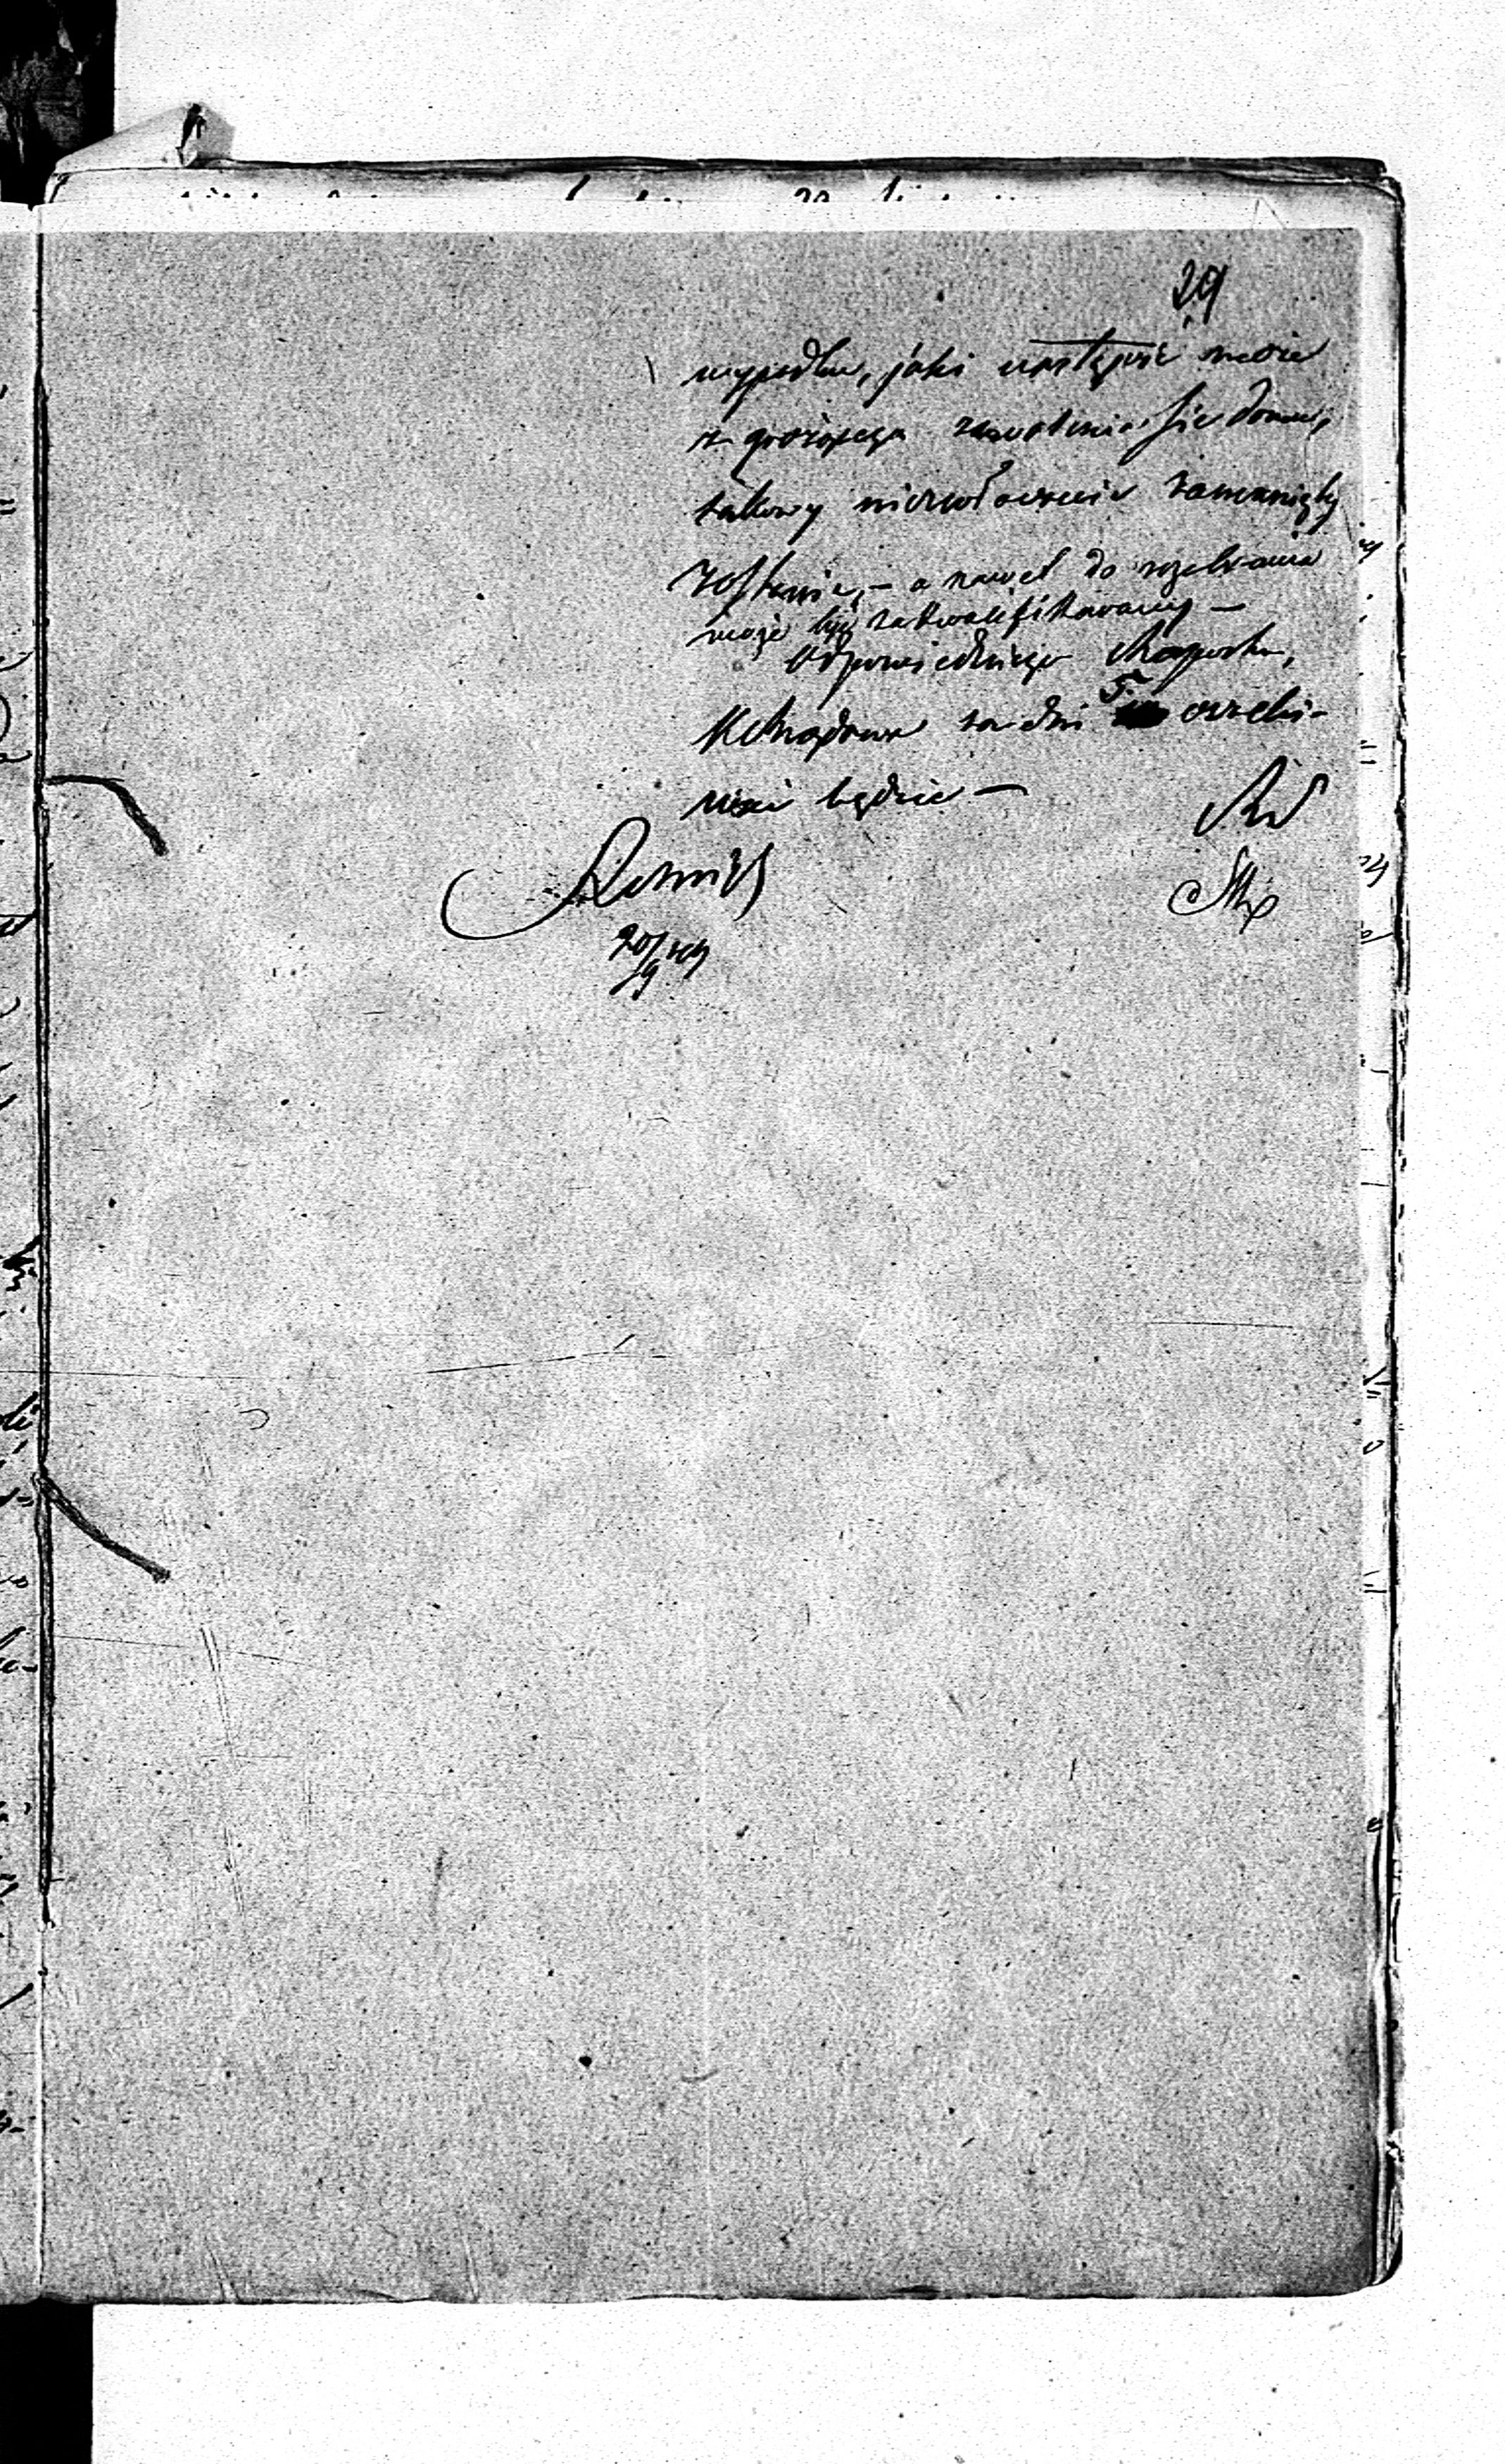 29
wypadku, jaki nastąpić może
z grożącego zawalenia się domu,
takowy niezwłocznie zamknięty
zostanie, – a nawet do rozebrania
może być zakwalifikowany –
Odpowiedniego Raportu,
Magistrat za dni 5. oczeki-
wać będzie –
20/9